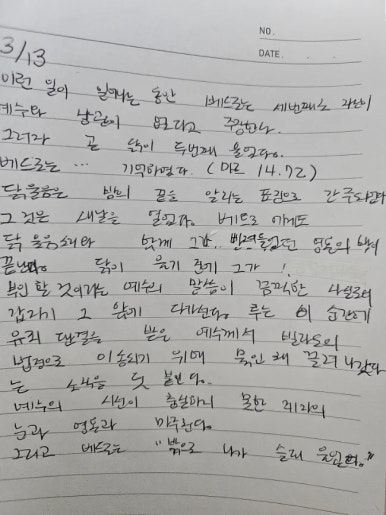 NO.
DATE.
3/13
이런 일이 일어나는 동안 베드로는 세번째로 자신이
예수와 상관이 없다고 주장한다.
그러자 곧 닭이 두번째 울었다.
베드로는 … 기억하였다. (마르 14.72)
닭울음은 밤의 끝을 알리는 표징으로 간주되었다
그것은 새날을 열었다. 베드로에게도
닭 울음소리와 함께 그가 영혼의 밤이
끝난다. 닭이 울기 전에 그가
부인 할 것이라는 예수의 말씀이 끔찍한 사실로서
갑자기 그 앞에 다가선다. 루는 이 순간에
유죄 판결을 받은 예수께서 빌라도의
법정으로 이송되기 위해 묶인 채 끌려 나갔다
는 소식을 덧붙인다.
예수의 시선이 충실하지 못한 제자의
눈과 영혼과 마주친다.
그리고 베드로는 "밖으로 나가 슬피 울었다."